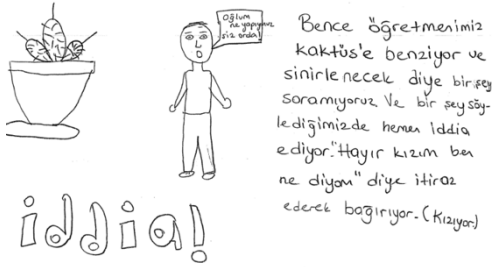 Oğlum
ne yapıyorsunuz
siz orda!
Bence "öğretmenimiz
kaktüs'e benziyor ve
sinirlenecek diye bir şey
soramıyoruz Ve bir şey söy-
lediğimizde hemen iddia
ediyor. "Hayır kızım ben
ne diyom" diye itiraz
ederek bağırıyor. (Kızıyor)
iddia!